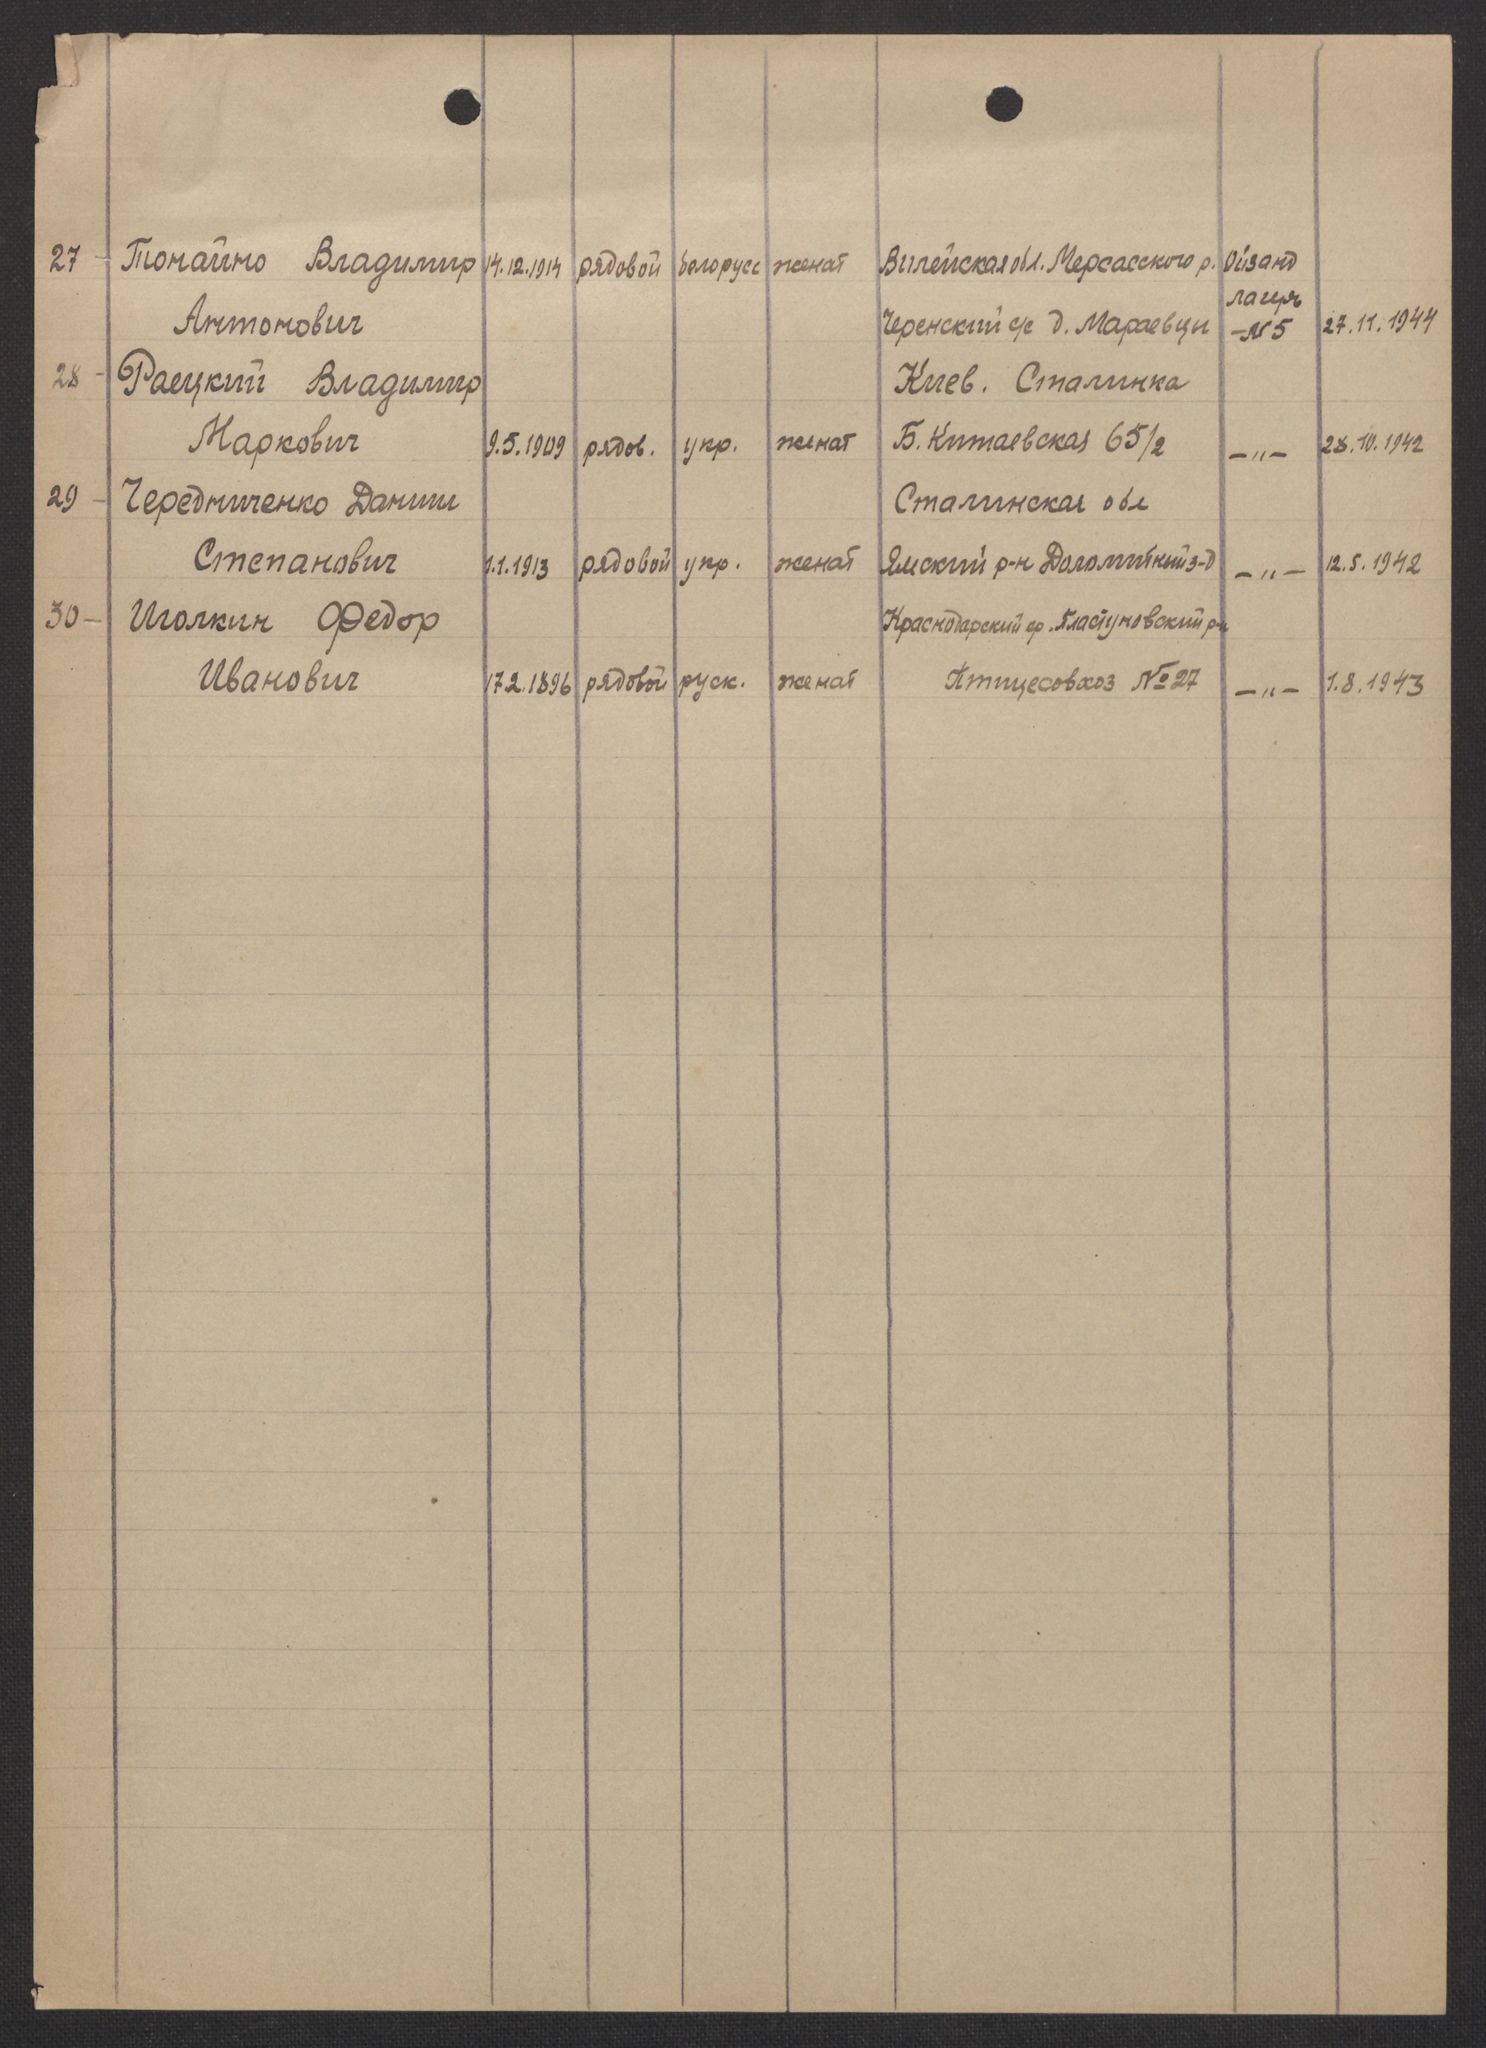 27 - Тонайно Владимир 14.12.1914 рядовой белорусс женат Вилейская обл. Мерсасского р. Ойзанд
лагерь
Антонович Черенский с/с д. Мараевцы - №5 27.11.1944
28 - Раецкий Владимир Киев. Сталинка
Маркович 9.5.1909 рядов. укр. женат Б. Китаевская 65/2 -"- 28.10.1942
29 - Чередниченко Данил Сталинская обл
Степанович 1.1.1913 рядовой укр. женат Ямский р-н Доломитный з-д -"- 12.5.1942
30 - Иголкин Федор Краснодарский кр. Пластуновский р-н
Иванович 17.2.1896 рядовой руск. женат Птицесовхоз №27 -"- 1.8.1943